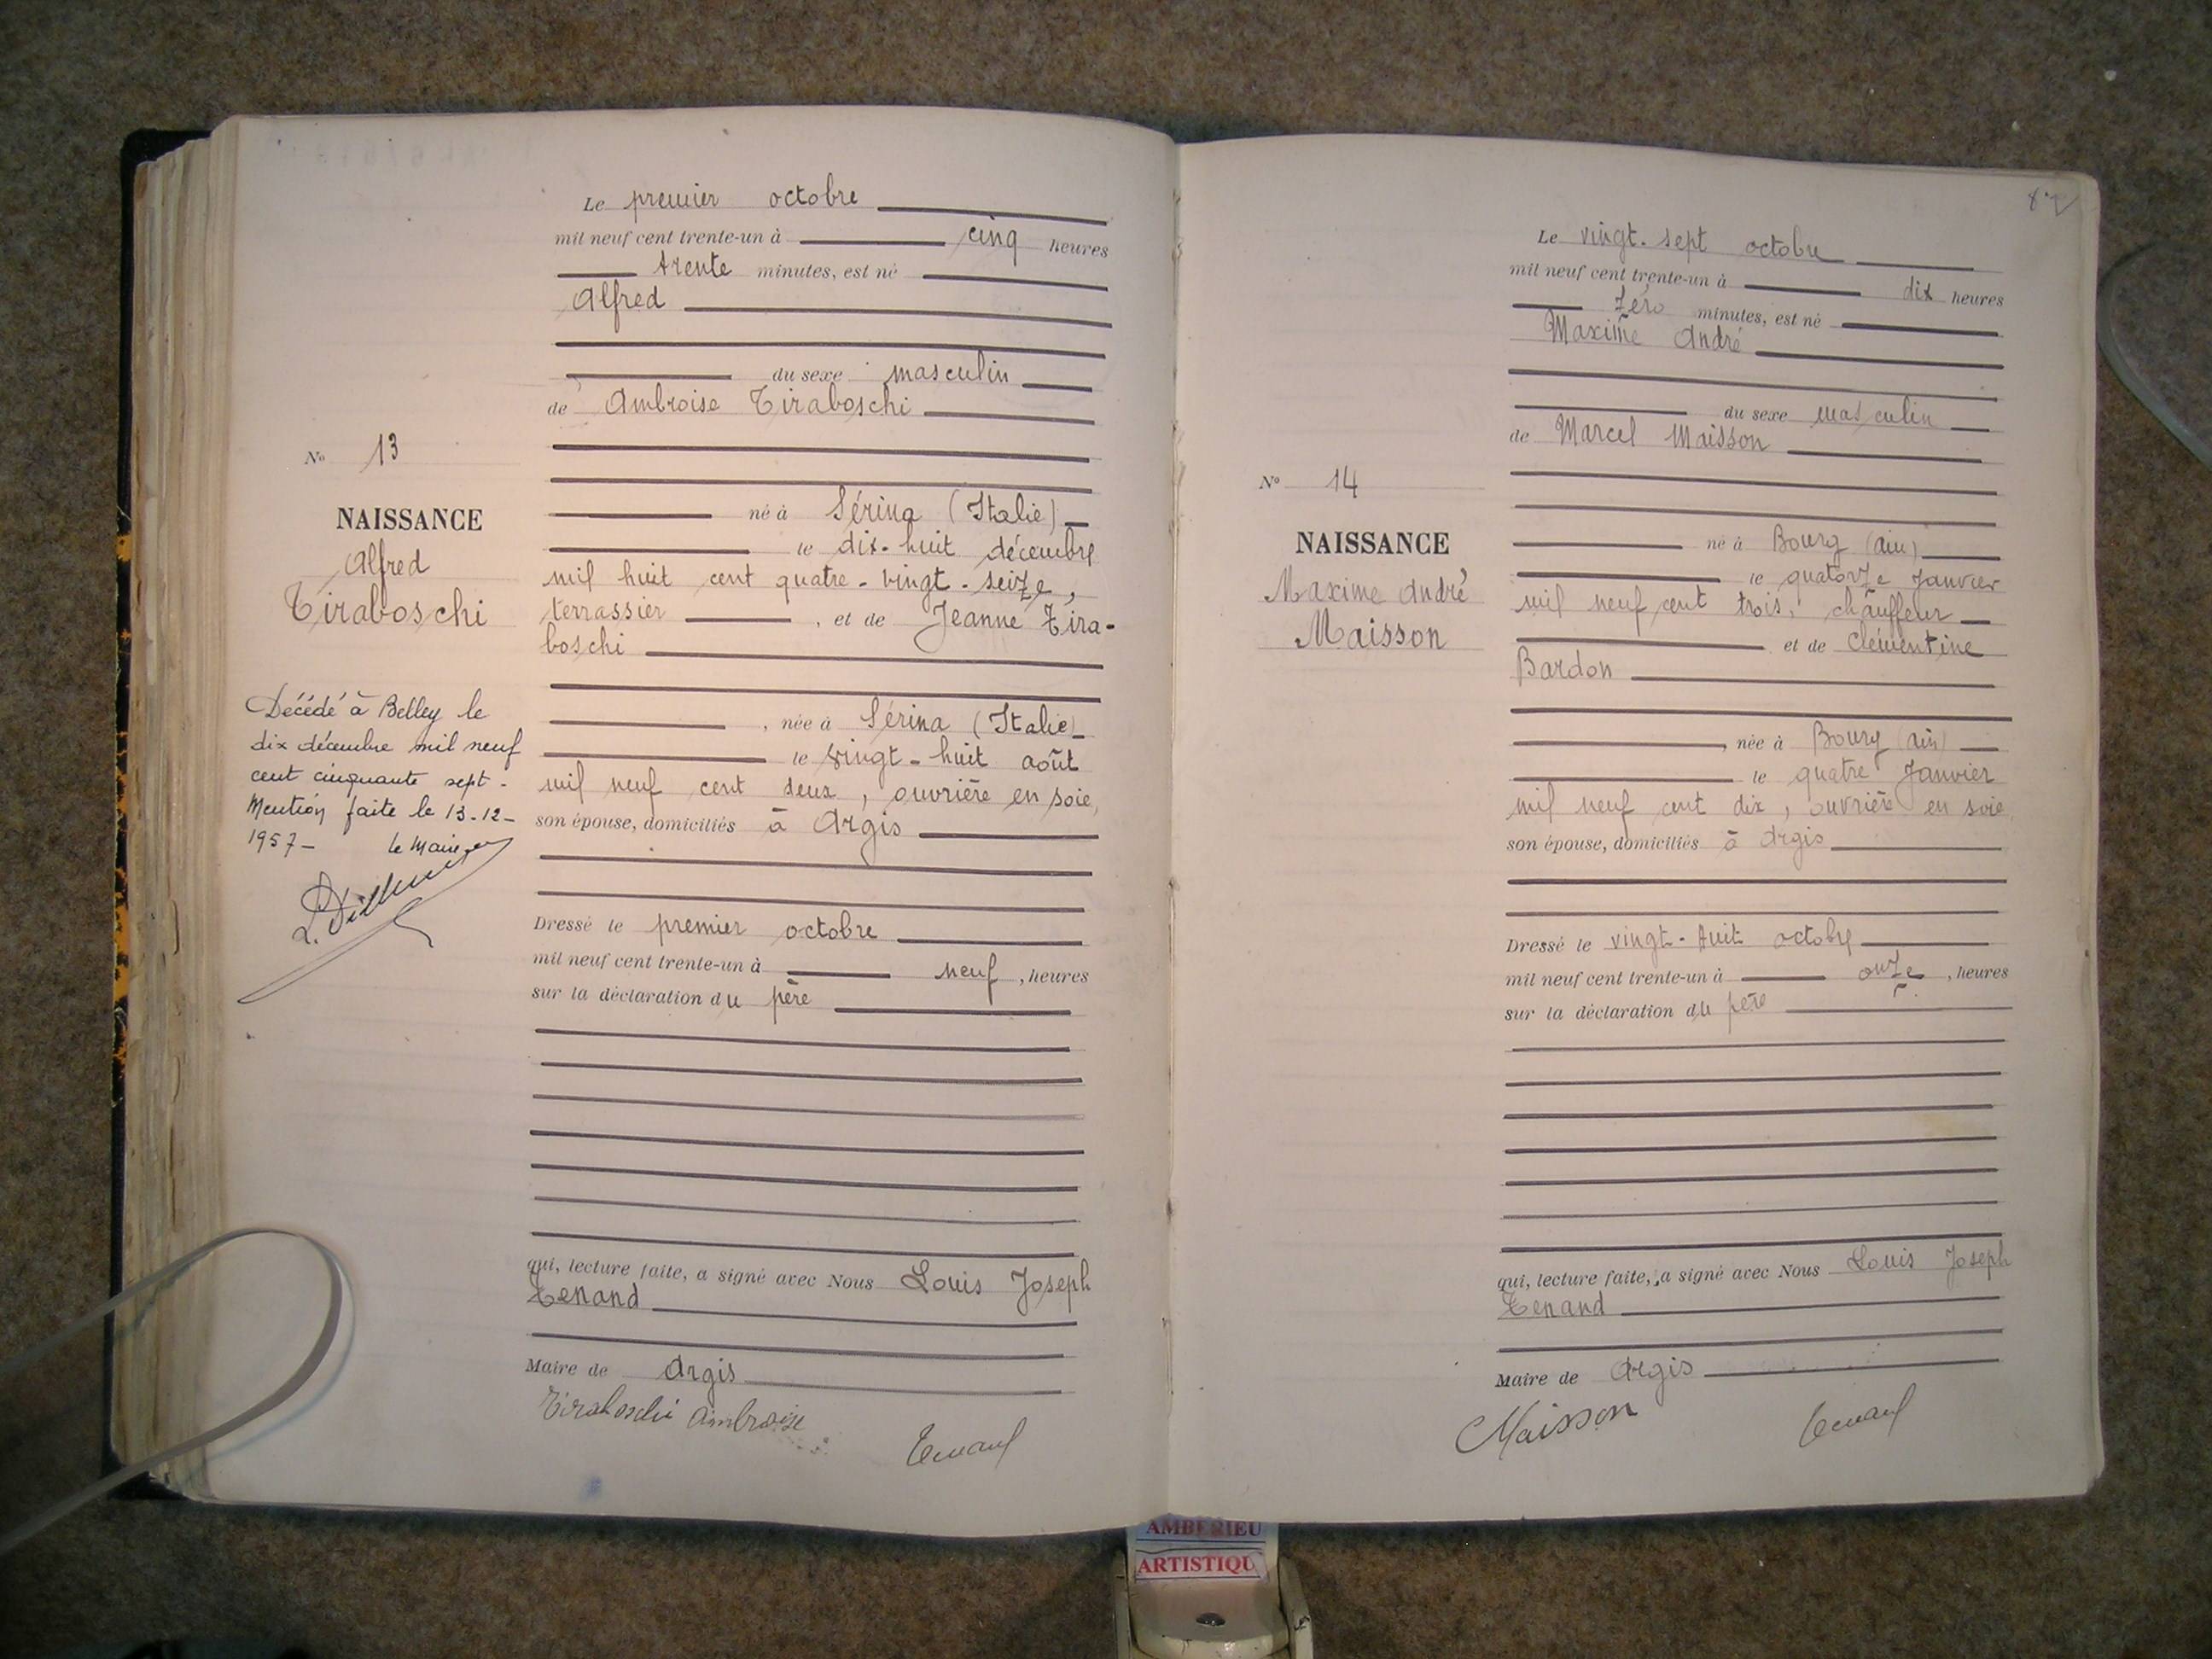 Le premier octobre
mil neuf cent trente-un à cinq heures
trente minutes, est né
Alfred
du sexe masculin
de Ambroise Tiraboschi
No 13
NAISSANCE
Alfred
Tiraboschi
né à Sérina (Italie)
le dix-huit décembre
mil huit cent quatre-vingt-seize,
terrassier , et de Jeanne Tira-
boschi
, née à Sérina (Italie)
le vingt-huit août
mil neuf cent deux, ouvrière en soie,
son épouse, domiciliés à Argis
Décédé à Belley le
dix décembre mil neuf
cent cinquante sept -
Mention faite le 13-12-
1957- le Maire
Dressé le premier octobre
mil neuf cent trente-un à neuf , heures
sur la déclaration du père
qui, lecture faite, a signé avec Nous Louis Joseph
Tenand
Maire de Argis
Tiraboschi Ambroise
Tenand
87
Le vingt-sept octobre
mil neuf cent trente-un à dix heures
zéro minutes, est né
Maxime André
du sexe masculin
de Marcel Maisson
No 14
NAISSANCE
Maxime André
Maisson
né à Bourg (Ain)
le quatorze Janvier
mil neuf cent trois, chauffeur
et de Clémentine
Bardon
, née à Bourg (Ain)
le quatre Janvier
mil neuf cent dix, ouvrière en soie,
son épouse, domiciliés à Argis
Dressé le vingt-huit octobre
mil neuf cent trente-un à onze , heures
sur la déclaration du père
qui, lecture faite, a signé avec Nous Louis Joseph
Tenand
Maire de Argis
Maisson
Tenand
AMBERIEU
ARTISTIQU